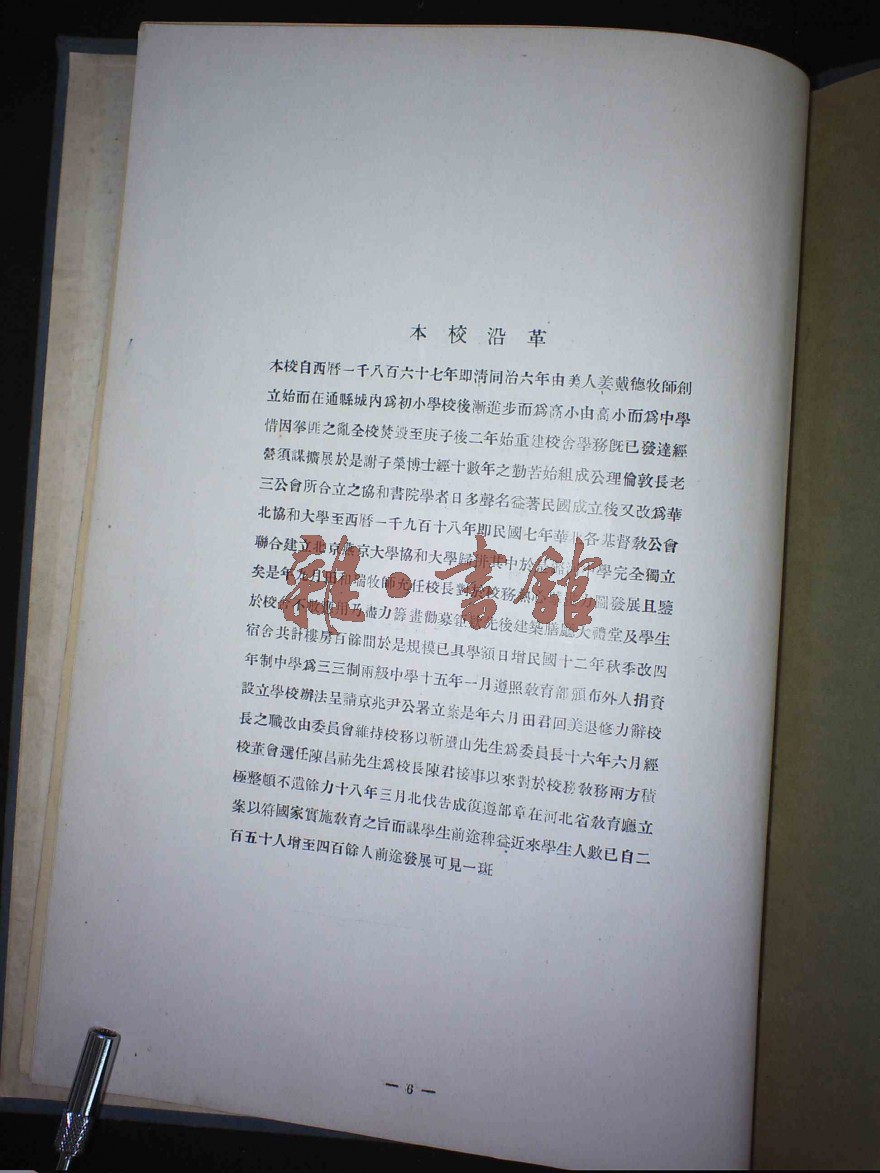 本校沿革
本校自西曆一千八百六十七年即清同治六年由美人姜戴德牧師創
立始而在通縣城内爲初小學校後漸進步而爲高小由高小而爲中學
惜因拳匪之亂全校焚毀至庚子後二年始重建校舍學務旣已發達經
營須謀擴展於是謝子榮博士經十數年之勤苦始組成公理倫敦長老
三公會所合立之協和書院學者日多聲名益著民國成立後又改爲華
北協和大學至西曆一千九百十八年即民國七年華北各基督敎公會
聯合建立北京燕京大學協和大學歸併其中於 學完全獨立
矣是年九月田和瑞牧師充任校長對於校務 力圖發展且鑒
於校舍不敷 用乃盡力籌畫勸募 先後建築膳廳大禮堂及學生
宿舍共計樓房百餘間於是規模已具學額日增民國十二年秋季改四
年制中學爲三三制兩級中學十五年一月遵照敎育部頒布外人捐資
設立學校辦法呈請京兆尹公署立案是年六月田君回美退修力辭校
長之職改由委員會維持校務以靳 山先生爲委員長十六年六月經
校董會選任陳昌祐先生爲校長陳君接事以來對於校務敎務兩方積
極整頓不遺餘力十八年三月北伐告成復遵部章在河北省敎育廳立
案以符國家實施敎育之旨而謀學生前途稗益近來學生人數已自二
百五十人增至四百餘人前途發展可見一斑
— 6 —
雜·書館